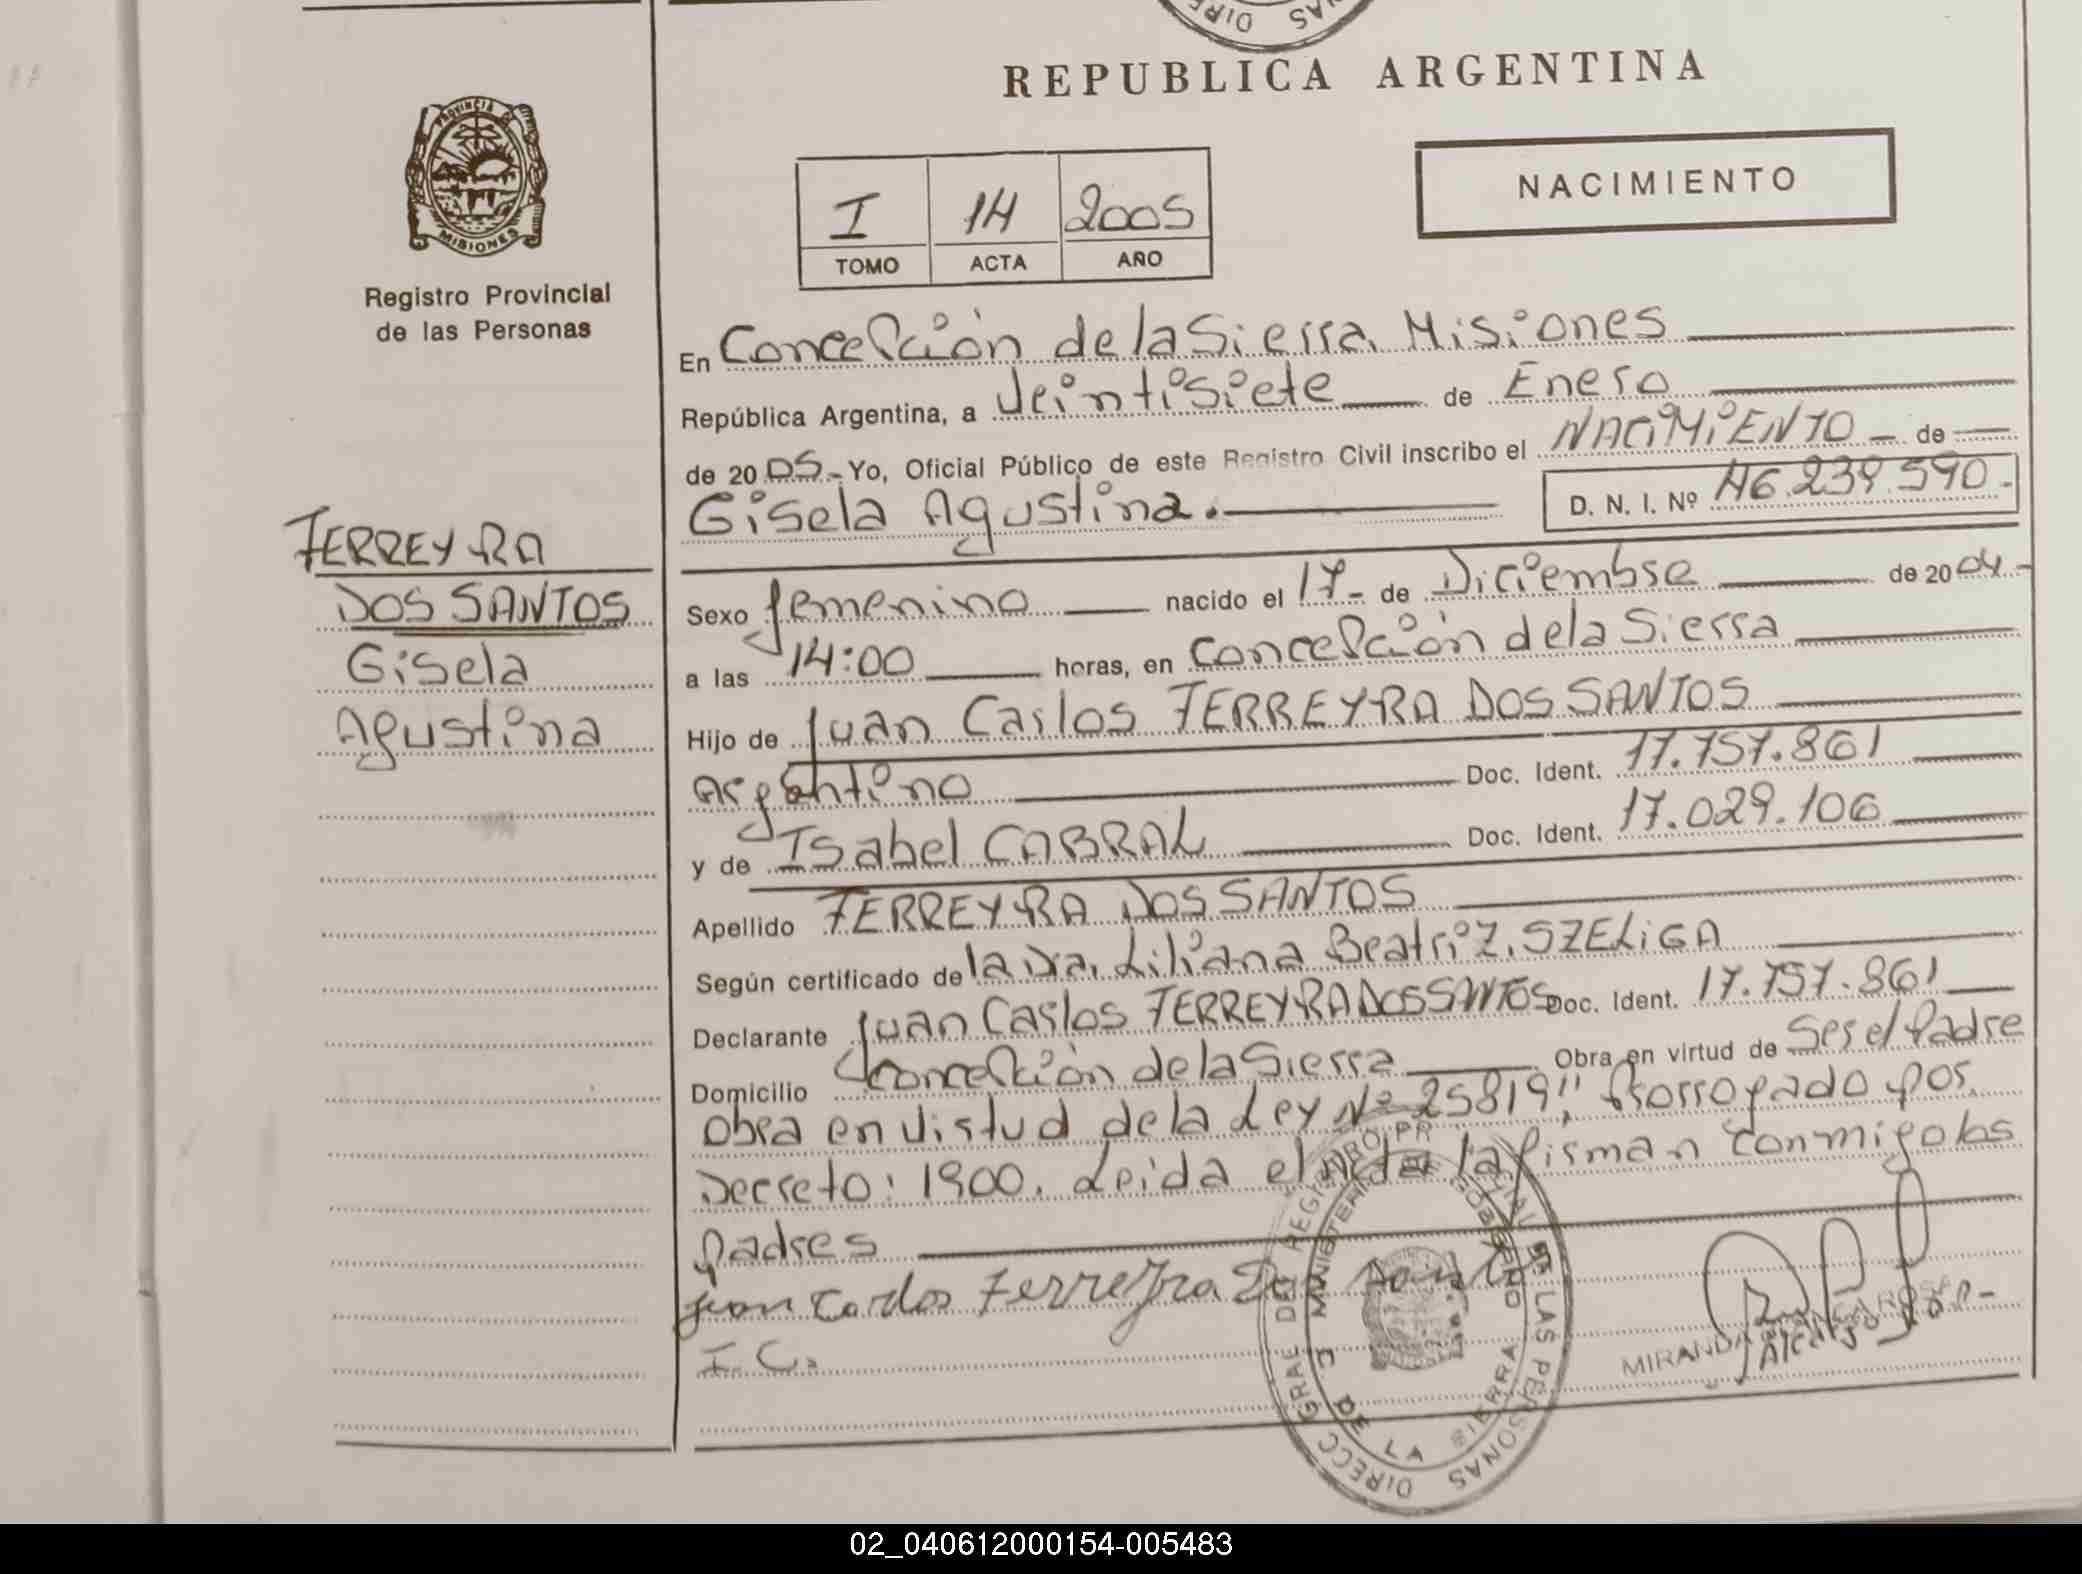 DIRE NAS
REPUBLICA ARGENTINA
PROVINCIA DE MISIONES
Registro Provincial
de las Personas
I 14 2005
TOMO ACTA AÑO
NACIMIENTO
En Concepción de la Sierra, Misiones
República Argentina, a Veintisiete de Enero
de 20 05.- Yo, Oficial Público de este Registro Civil inscribo el NACIMIENTO de
Gisela Agustina. D. N. I. Nº 46.239.590.-
TERREYRA
DOS SANTOS
Gisela
Agustina
Sexo femenino nacido el 17- de Diciembre de 20 04.-
a las 14:00 horas, en Concepción de la Sierra
Hijo de Juan Carlos TERREYRA DOS SANTOS
Argentino Doc. Ident. 17.757.861
y de Isabel CABRAL Doc. Ident. 17.029.106
Apellido TERREYRA DOS SANTOS
Según certificado de la Dra. Liliana Beatriz. SZELIGA
Declarante Juan Carlos TERREYRA DOS SANTOS Doc. Ident. 17.757.861
Domicilio Concepción de la Sierra Obra en virtud de Ser el Padre
Obra en virtud de la Ley Nº 25819", Prorrogado por
Decreto: 1900. Leida el acta la firman conmigo los
padres
Juan Carlos Terreyra Dos Santos
I. C.
DIRECC GRAL DEL REGISTRO PR DE LAS PERSONAS
MINISTERI GOBIERNO
C. DE LA SIERRA
MIRANDA ROSA
02_040612000154-005483